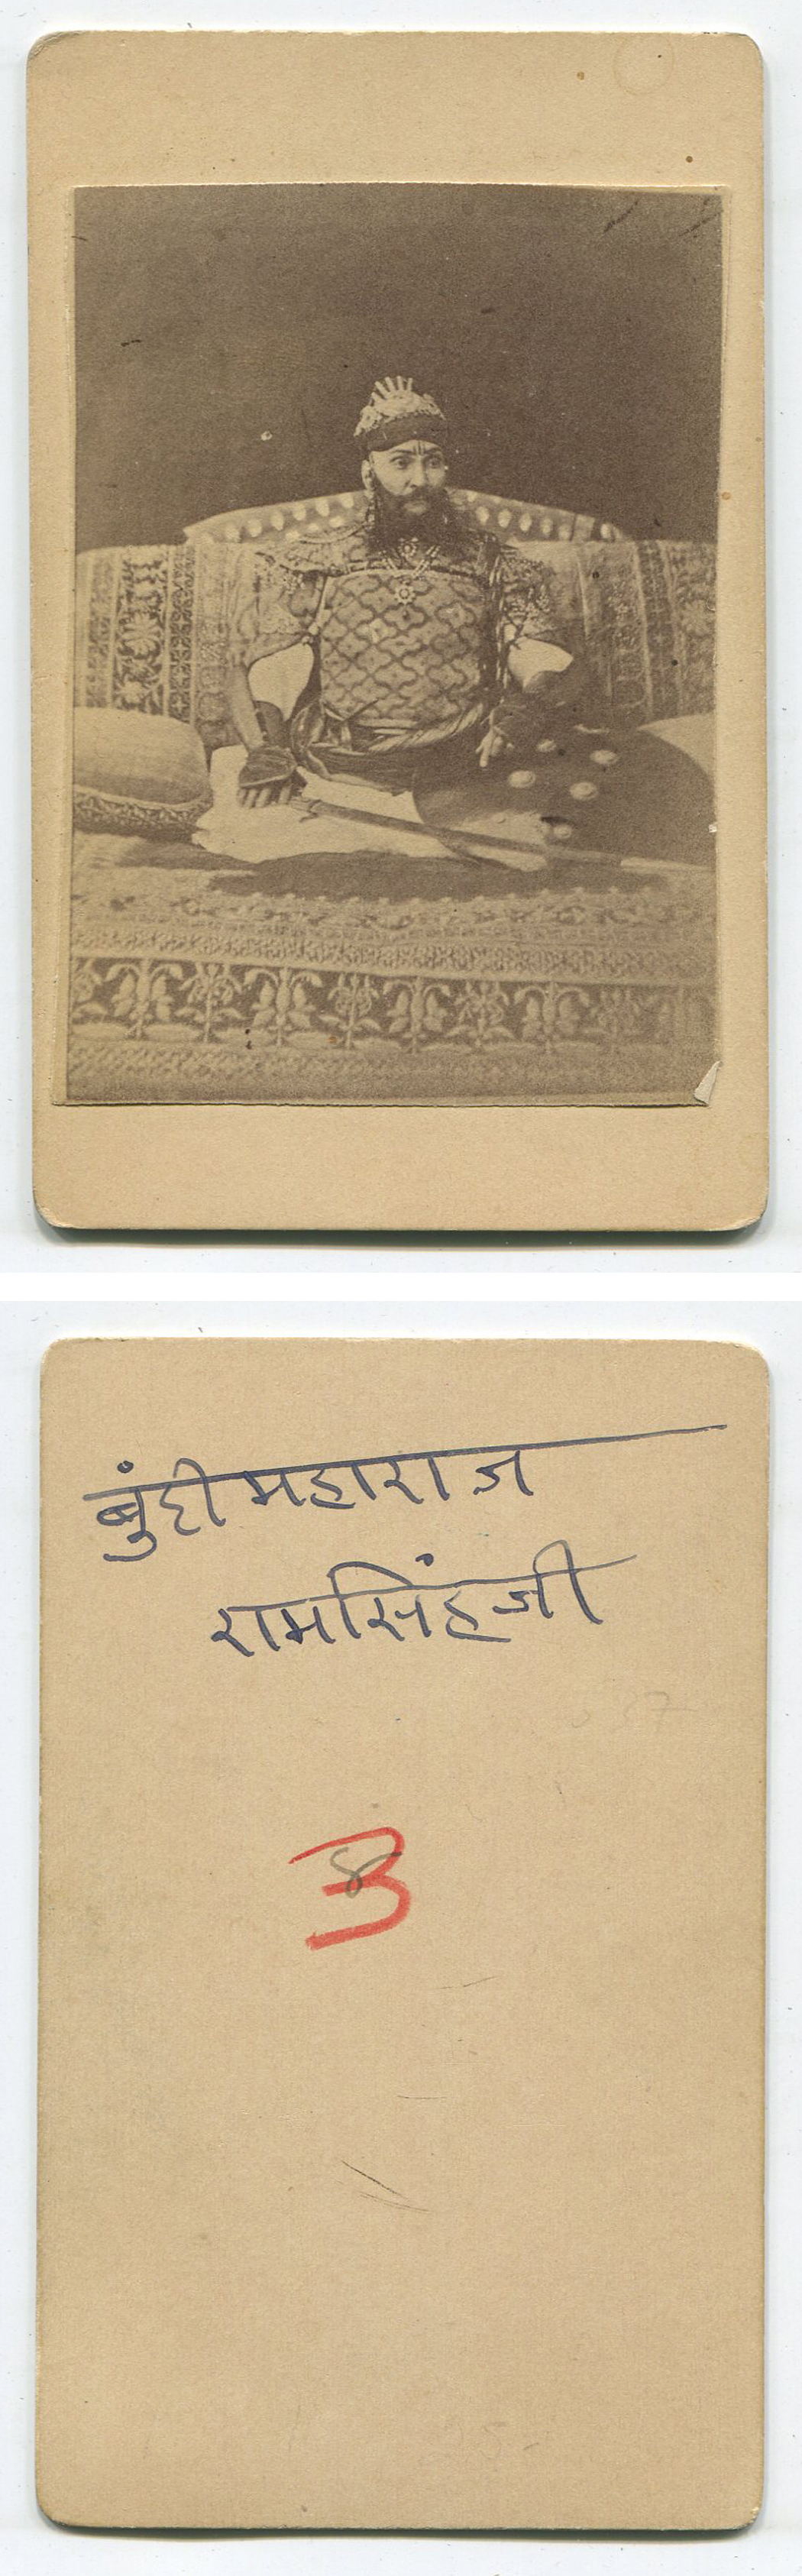 बुंदी महाराज
रामसिंहजी
3
8